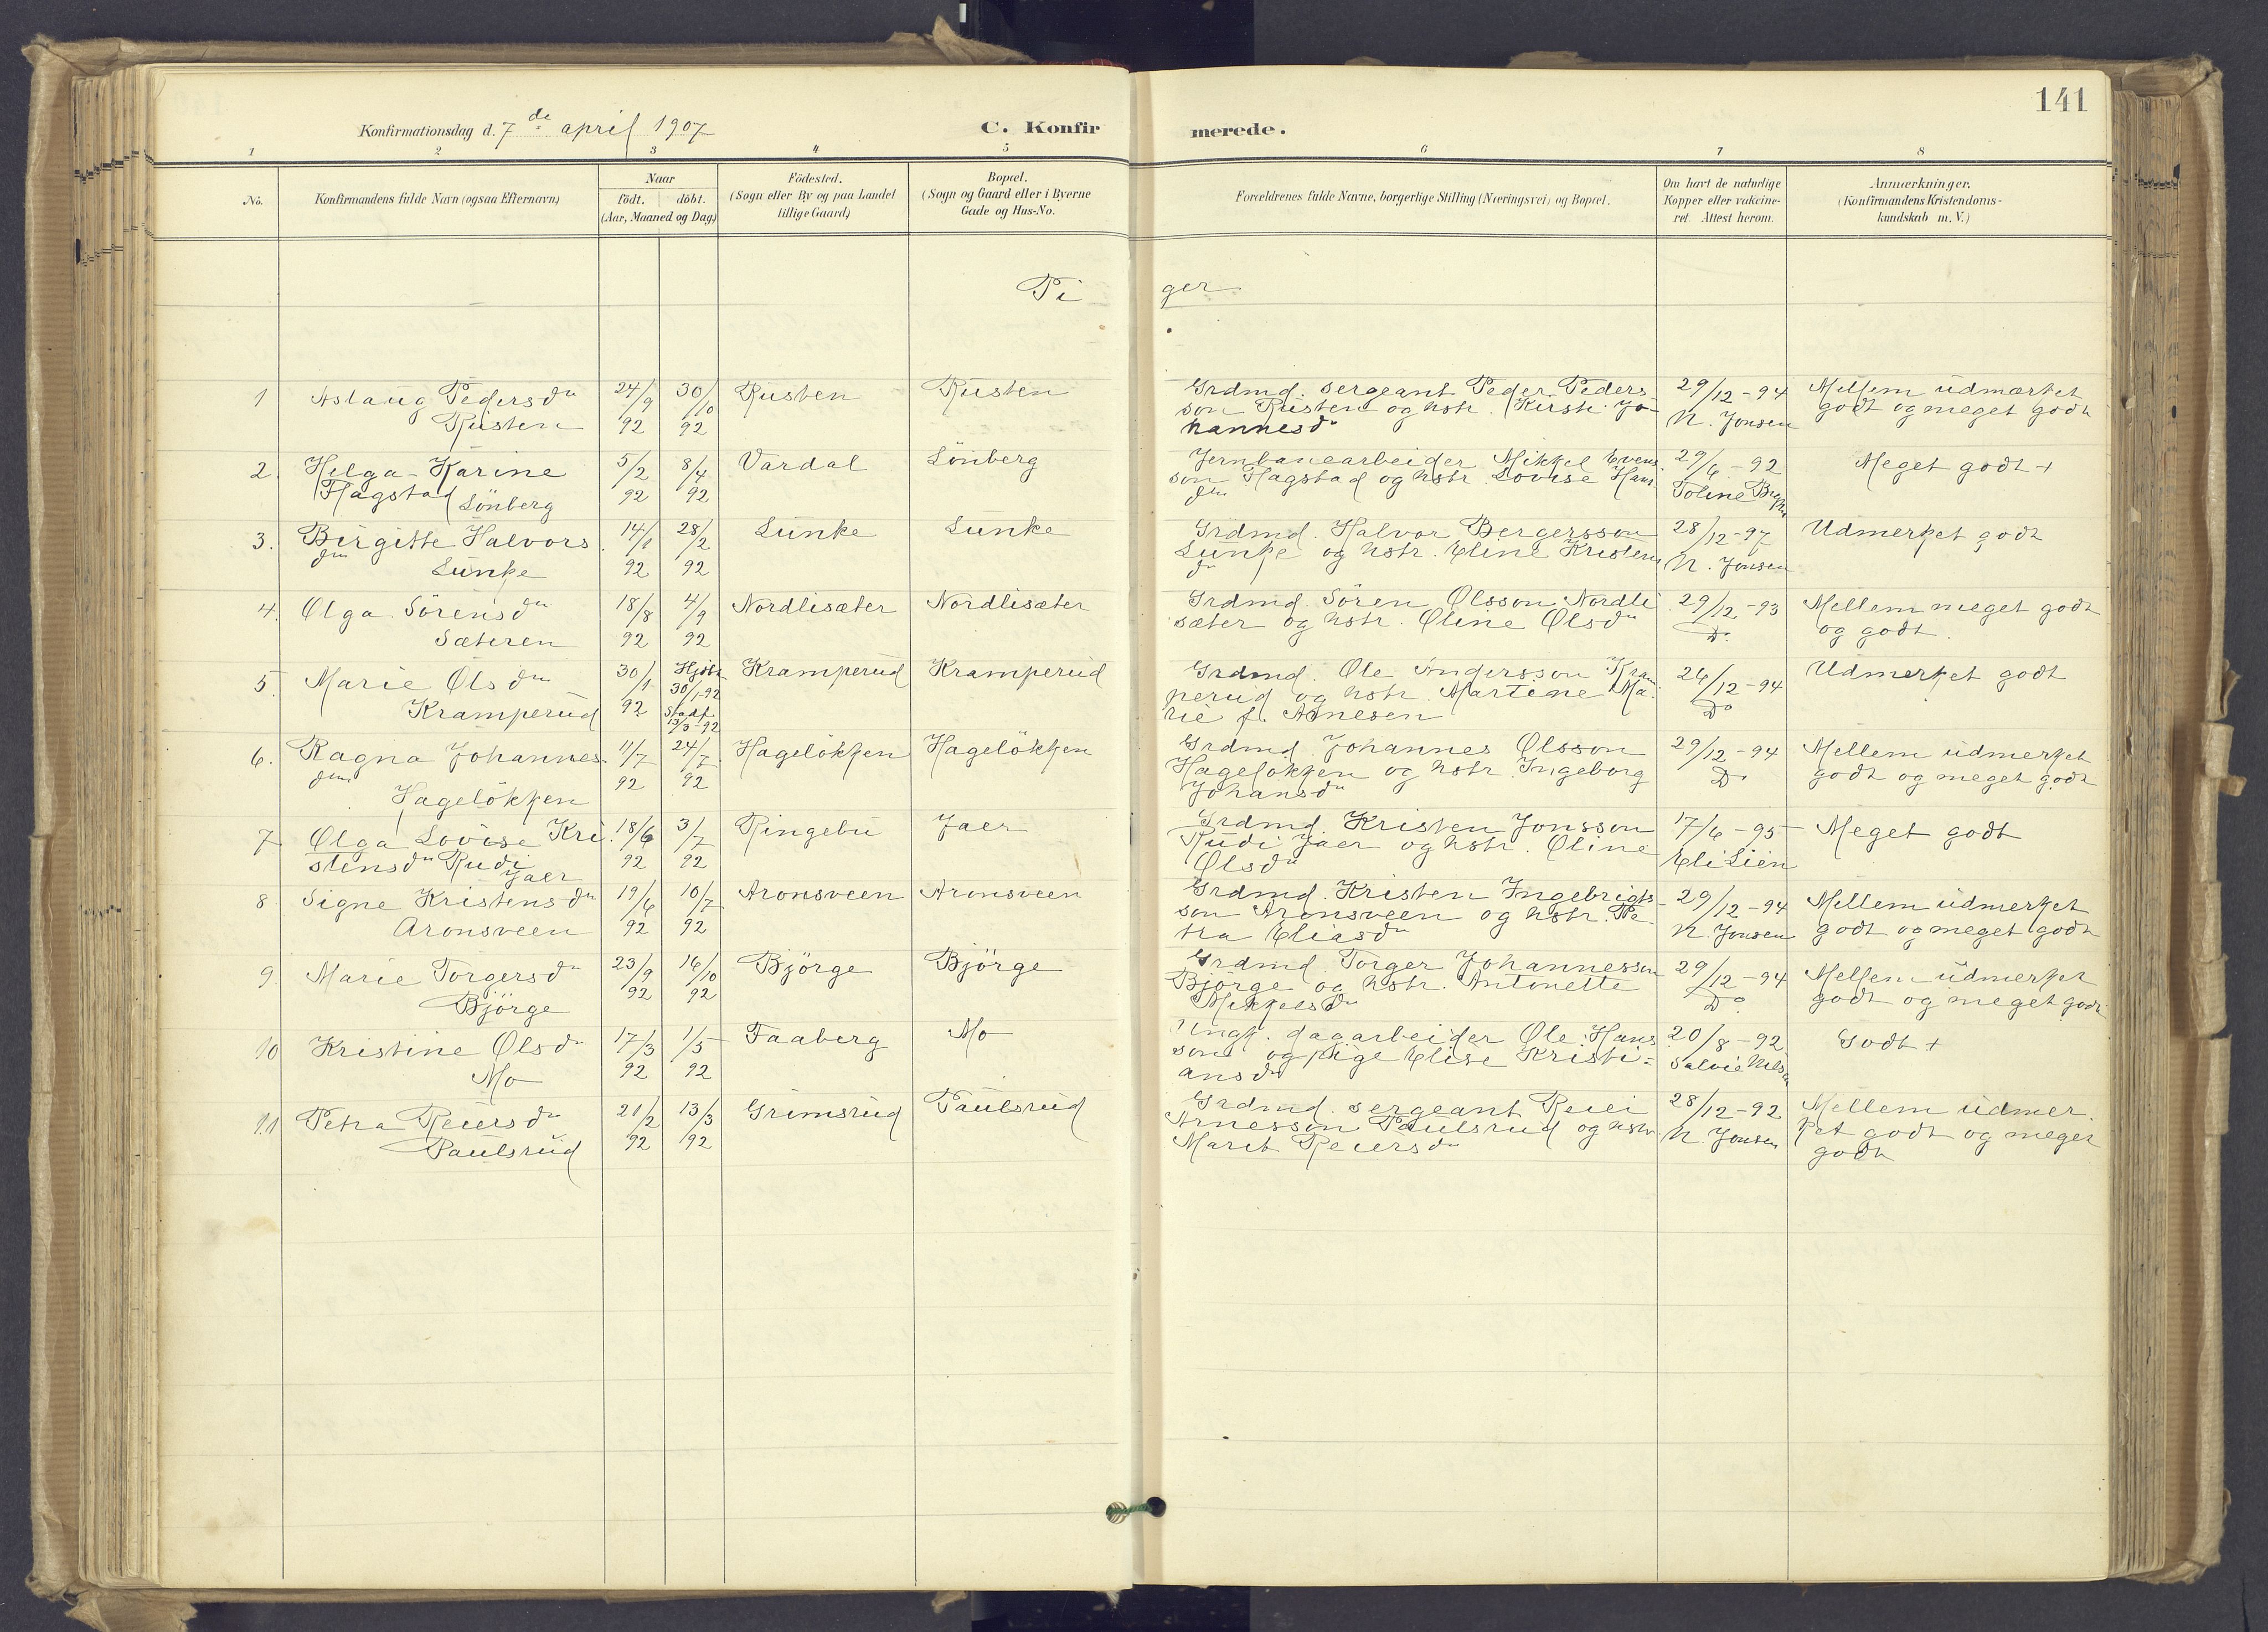 141
Konfirmationsdag d. 7de april 1907 C. Konfirmerede.
1 2 3 4 5 6 7 8
No.
Konfirmandens fulde Navn (ogsaa Efternavn)
Naar
födt. döbt.
(Aar, Maaned og Dag)
Födested.
(Sogn eller By og paa Landet
tillige Gaard)
Bopæl.
(Sogn og Gaard eller i Byerne
Gade og Hus-No.
Forældrenes fulde Navne, borgerlige Stilling (Næringsvei) og Bopæl.
Om havt de naturlige
Kopper eller vaccine-
ret. Attest herom.
Anmærkninger.
(Konfirmandens Kristendoms-
kundskab m. V.)
Piger
1 Aslaug Pedersdtr 24/9 30/10 Rusten Rusten Grdmd. sergeant Peder Peders 29/12-94 Mellem udmærket
Rusten 92 92 son Rusten og hstr. Kirsti Jo- N. Jonsen godt og meget godt
hannesdr
2. Helga Karine 5/2 8/4 Vardal Lönberg Jernbanearbeider Mikkel Evens 29/6-92 Meget godt +
Hagstad Lönberg 92 92 son Hagstad og hstr. Lovise Hans Toline
dtr
3. Birgitte Halvors 14/1 28/2 Lunke Lunke Grdmd. Halvor Bergersson 28/12-97 Udmerket godt
dtr Lunke 92 92 Lunke og hstr. Eline Kristens N. Jonsen
dr
4. Olga Sörensdtr 18/8 4/9 Nordlisæter Nordlisæter Grdmd. Sören Olsson Nordli 29/12-93 Mellem meget godt
Sæteren 92 92 sæter og hstr. Oline Olsdtr Do og godt.
5. Marie Olsdtr 30/1 Hjdbt Kramperud Kramperud Grdmd. Ole Andersson Kram 26/12-94 Udmerket godt
Kramperud 92 30/1-92 perud og hstr. Martine Ma- Do
Stadf. 13/3-92 rie f. Arnesen
6. Ragna Johannes 11/7 24/7 Hagelökken Hagelökken Grdmd. Johannes Olsson 29/12-94 Mellem udmerket
dtr 92 92 Hagelökken og hstr. Ingeborg Do godt og meget godt
Hagelökken Johansdtr
7 Olga Lovise Kri 18/6 3/7 Ringebu Jaer Grdmd. Kristen Jonsson 17/6-95 Meget godt
stensdtr Rudi 92 92 Rudi Jaer og hstr. Oline Eli Lien
Jaer Olsdtr
8 Signe Kristensdtr 19/6 10/7 Aronsveen Aronsveen Grdmd. Kristen Ingebrigts- 29/12-94 Mellem udmerket
Aronsveen 92 92 son Aronsveen og hstr. Pe- N. Jonsen godt og meget godt
tra Eliasdtr
9. Marie Torgersdtr 23/9 16/10 Björge Björge Grdmd. Torger Johannesson 29/12-94 Mellem udmerket
Björge 92 92 Björge og hstr. Antonette Do godt og meget godt
Mikkelsdtr
10 Kristine Olsdtr 17/3 1/5 Faaberg Mo Ungk. dagarbeider Ole Hans 20/8-92 Godt +
Mo 92 92 son og pige Elise Kristi= Salvie Nilsen
ansdtr
11 Petra Reiersdtr 21/2 13/3 Grimsrud Paulsrud Grdmd. sergeant Reier 28/12-92 Mellem udmer
Paulsrud 92 92 Arnesson Paulsrud og hstr N. Jonsen ket godt og meget
Marit Reiersdtr godt